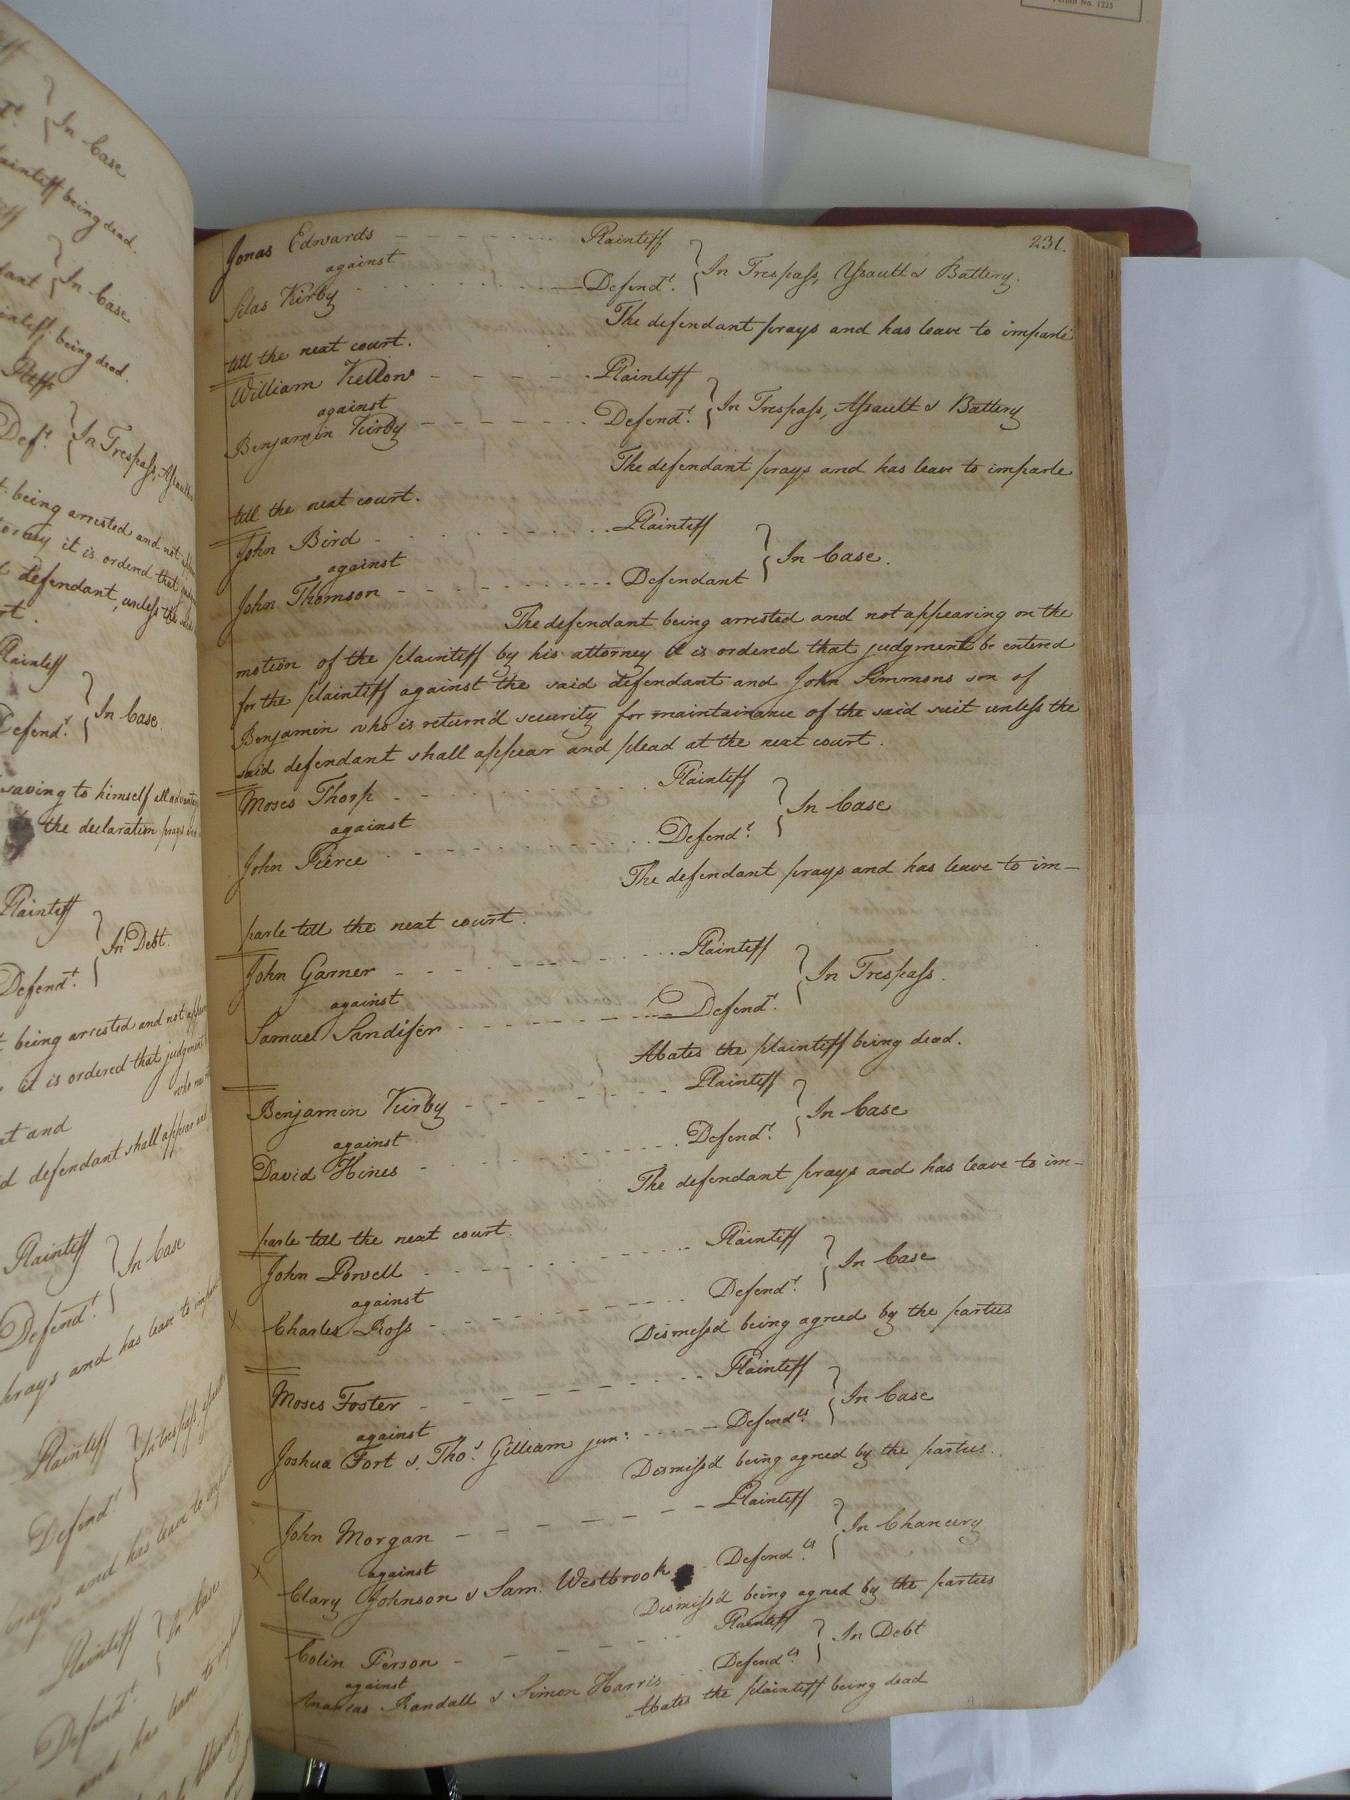 Permit No. 1225
In Case
plaintiff being dead.
In Case
being dead.
Pltff
Def.t In Trespass, Assault
being arrested and not
it is ordered that
defendant, unless the said
Plaintiff
Defend.t In Case
saving to himself all advantages
to the declaration prays
Plaintiff
Defend.t In Debt.
being arrested and not
it is ordered that judgment
and
defendant shall appear and
Plaintiff
Defend.t In Case
prays and has leave to
Plaintiff
Defend.t In Trespass,
and has leave to
Plaintiff
Defend.t In Case
and has leave to
231.
Jonas Edwards - - - - - - Plaintiff
against In Trespass, Assault & Battery.
Silas Kirby - - - - - - Defend.t
The defendant prays and has leave to imparle
till the next court.
William Kellow - - - - - - Plaintiff
against In Trespass, Assault & Battery
Benjamin Kirby - - - - - - Defend.t
The defendant prays and has leave to imparle
till the next court.
John Bird - - - - - - Plaintiff
against In Case.
John Thomson - - - - - - Defendant
The defendant being arrested and not appearing on the
motion of the plaintiff by his attorney it is ordered that judgment be entered
for the plaintiff against the said defendant and John Simmons son of
Benjamin who is return'd security for maintainance of the said suit unless the
said defendant shall appear and plead at the next court.
Moses Thorp - - - - - - Plaintiff
against In Case
John Pierce - - - - - - Defend.t
The defendant prays and has leave to im-
parle till the next court.
John Garner - - - - - - Plaintiff
against In Trespass.
Samuel Sandifer - - - - - - Defend.t
Abates the plaintiff being dead.
Benjamin Kirby - - - - - - Plaintiff
against In Case
David Hines - - - - - - Defend.t
The defendant prays and has leave to im-
parle till the next court.
John Powell - - - - - - Plaintiff
against In Case
x Charles Ross - - - - - - Defend.t
Dismiss'd being agreed by the parties
Moses Foster - - - - - - Plaintiff
against In Case
Joshua Fort & Tho.s Gilliam jun: - - - - Defend.ts
Dismiss'd being agreed by the parties.
John Morgan - - - - - - Plaintiff
against In Chancery
x Clary Johnson & Sam. Westbrook Defend.ts
Dismiss'd being agreed by the parties
Colin Person - - - - - - Plaintiff
against In Debt
Ananias Randall & Simon Harris Defend.ts
Abates the plaintiff being dead